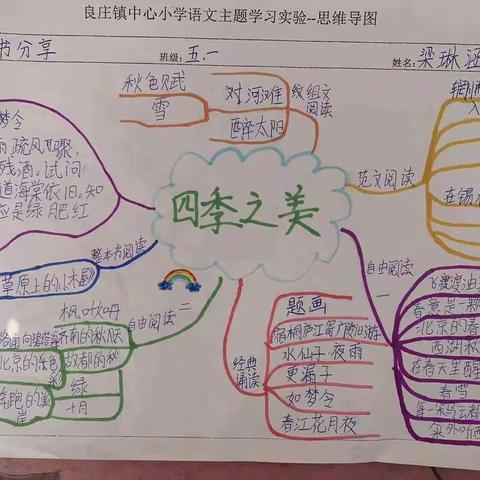 良庄镇中心小学语文主题学习实验--思维导图
书分享
班级:五.一
姓名:梁琳涵
秋色赋
雪
对河滩
醉太阳
群组文
阅读
范文阅读
四季之美
梦令
雨疏风骤,
残酒。试问
道海棠依旧。知
应是绿肥红
整本书阅读
草原上的小木屋
自由阅读二
枫叶如丹
济南的秋天
故都的秋
北京的春色
绿
十月
奔跑的
经典
诵读
题画
宿桐庐江寄广陵旧游
水仙子·夜雨
更漏子
如梦令
春江花月夜
自由阅读
一
春意是一
北京的春
西湖秋
在春天里
春雪
每一朵乌云都